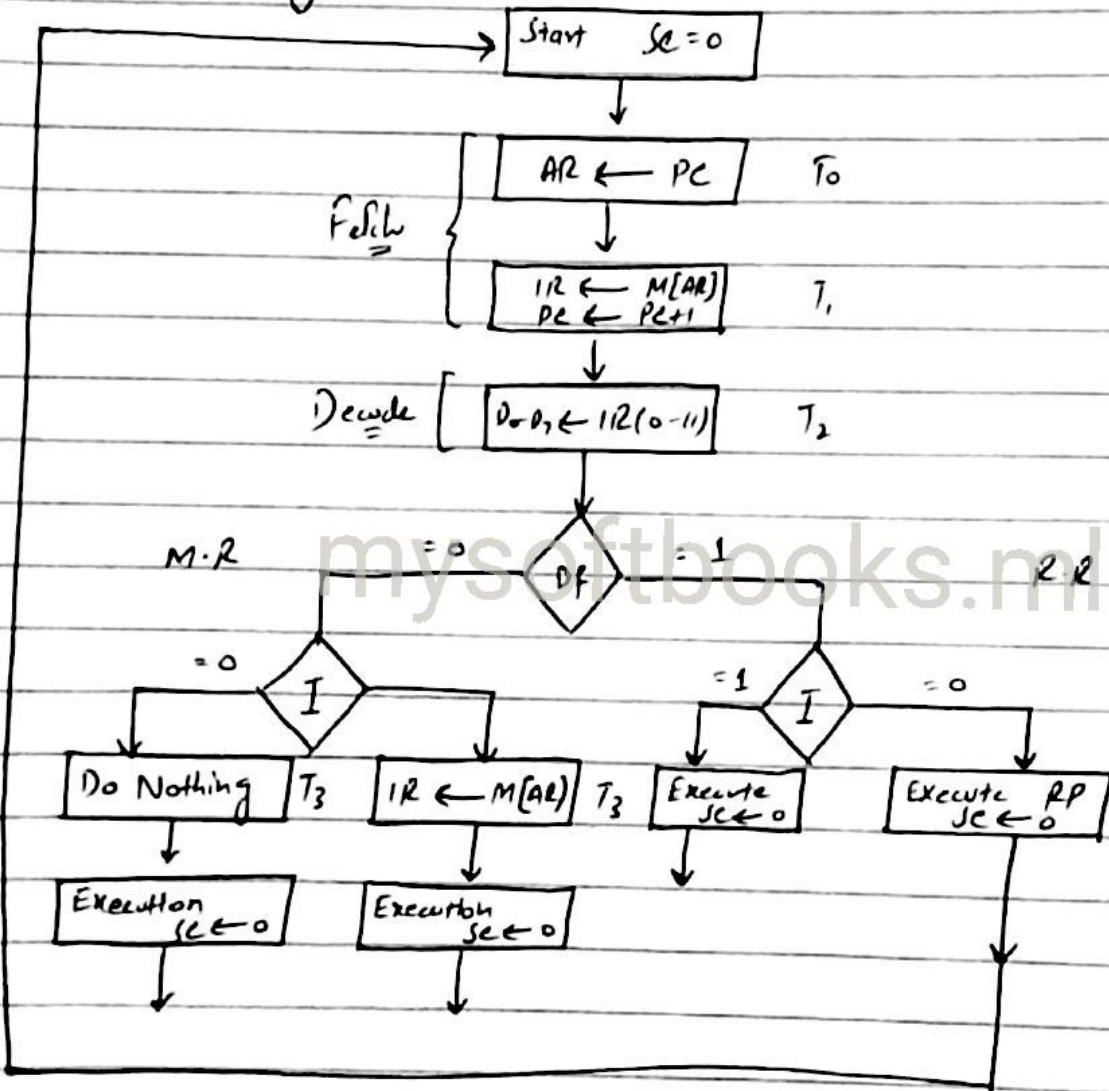 Start SC = 0
AR ← PC T0
Fetch
IR ← M[AR] T1
PC ← PC+1
Decode
D0-D7 ← IR(0-11) T2
M.R = 0 D7 = 1 R.R
mysoftbooks.ml
= 0 I = 1 I = 0
Do Nothing T3 IR ← M[AR] T3 Execute SC ← 0 Execute RP SC ← 0
Execution SC ← 0 Execution SC ← 0